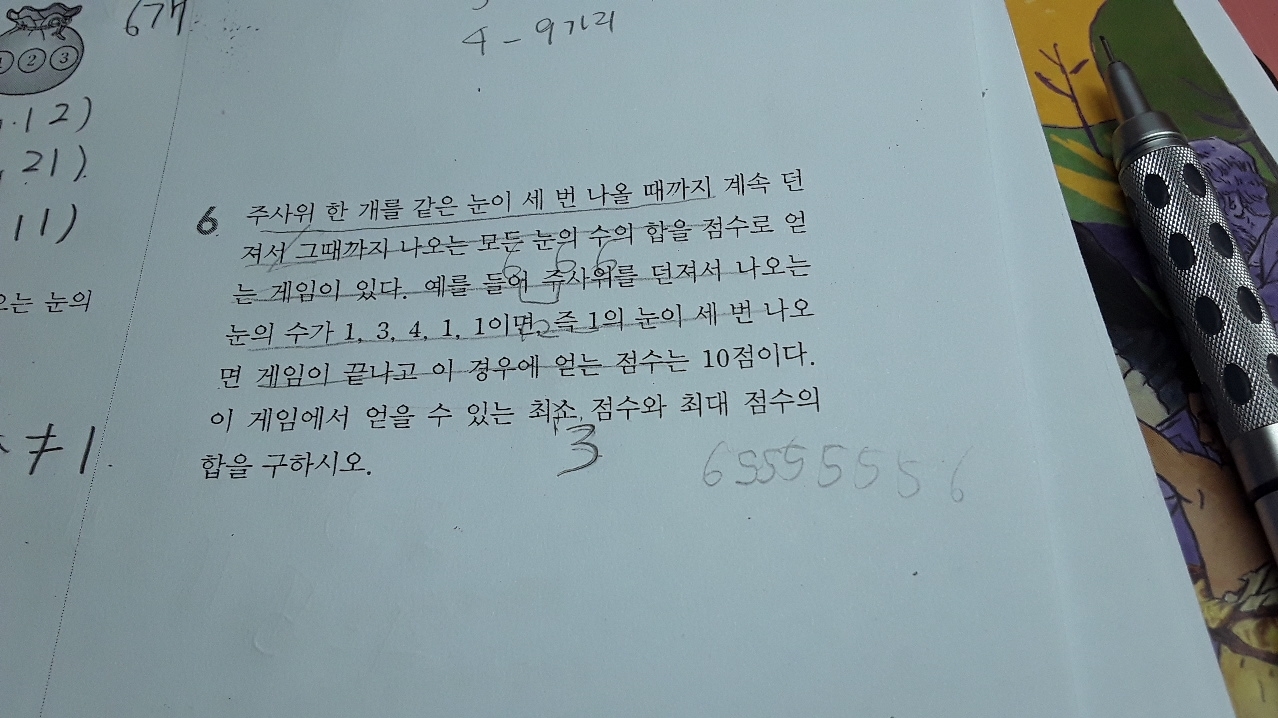 67개
4 - 9가리
1 2 3
.12)
, 21)
11)
으는 눈의
≠1
6 주사위 한 개를 같은 눈이 세 번 나올 때까지 계속 던
져서 그때까지 나오는 모든 눈의 수의 합을 점수로 얻
는 게임이 있다. 예를 들어 주사위를 던져서 나오는
눈의 수가 1, 3, 4, 1, 1이면, 즉 1의 눈이 세 번 나오
면 게임이 끝나고 이 경우에 얻는 점수는 10점이다.
이 게임에서 얻을 수 있는 최소 점수와 최대 점수의
합을 구하시오.
3
6 5 5 5 5 5 5 6